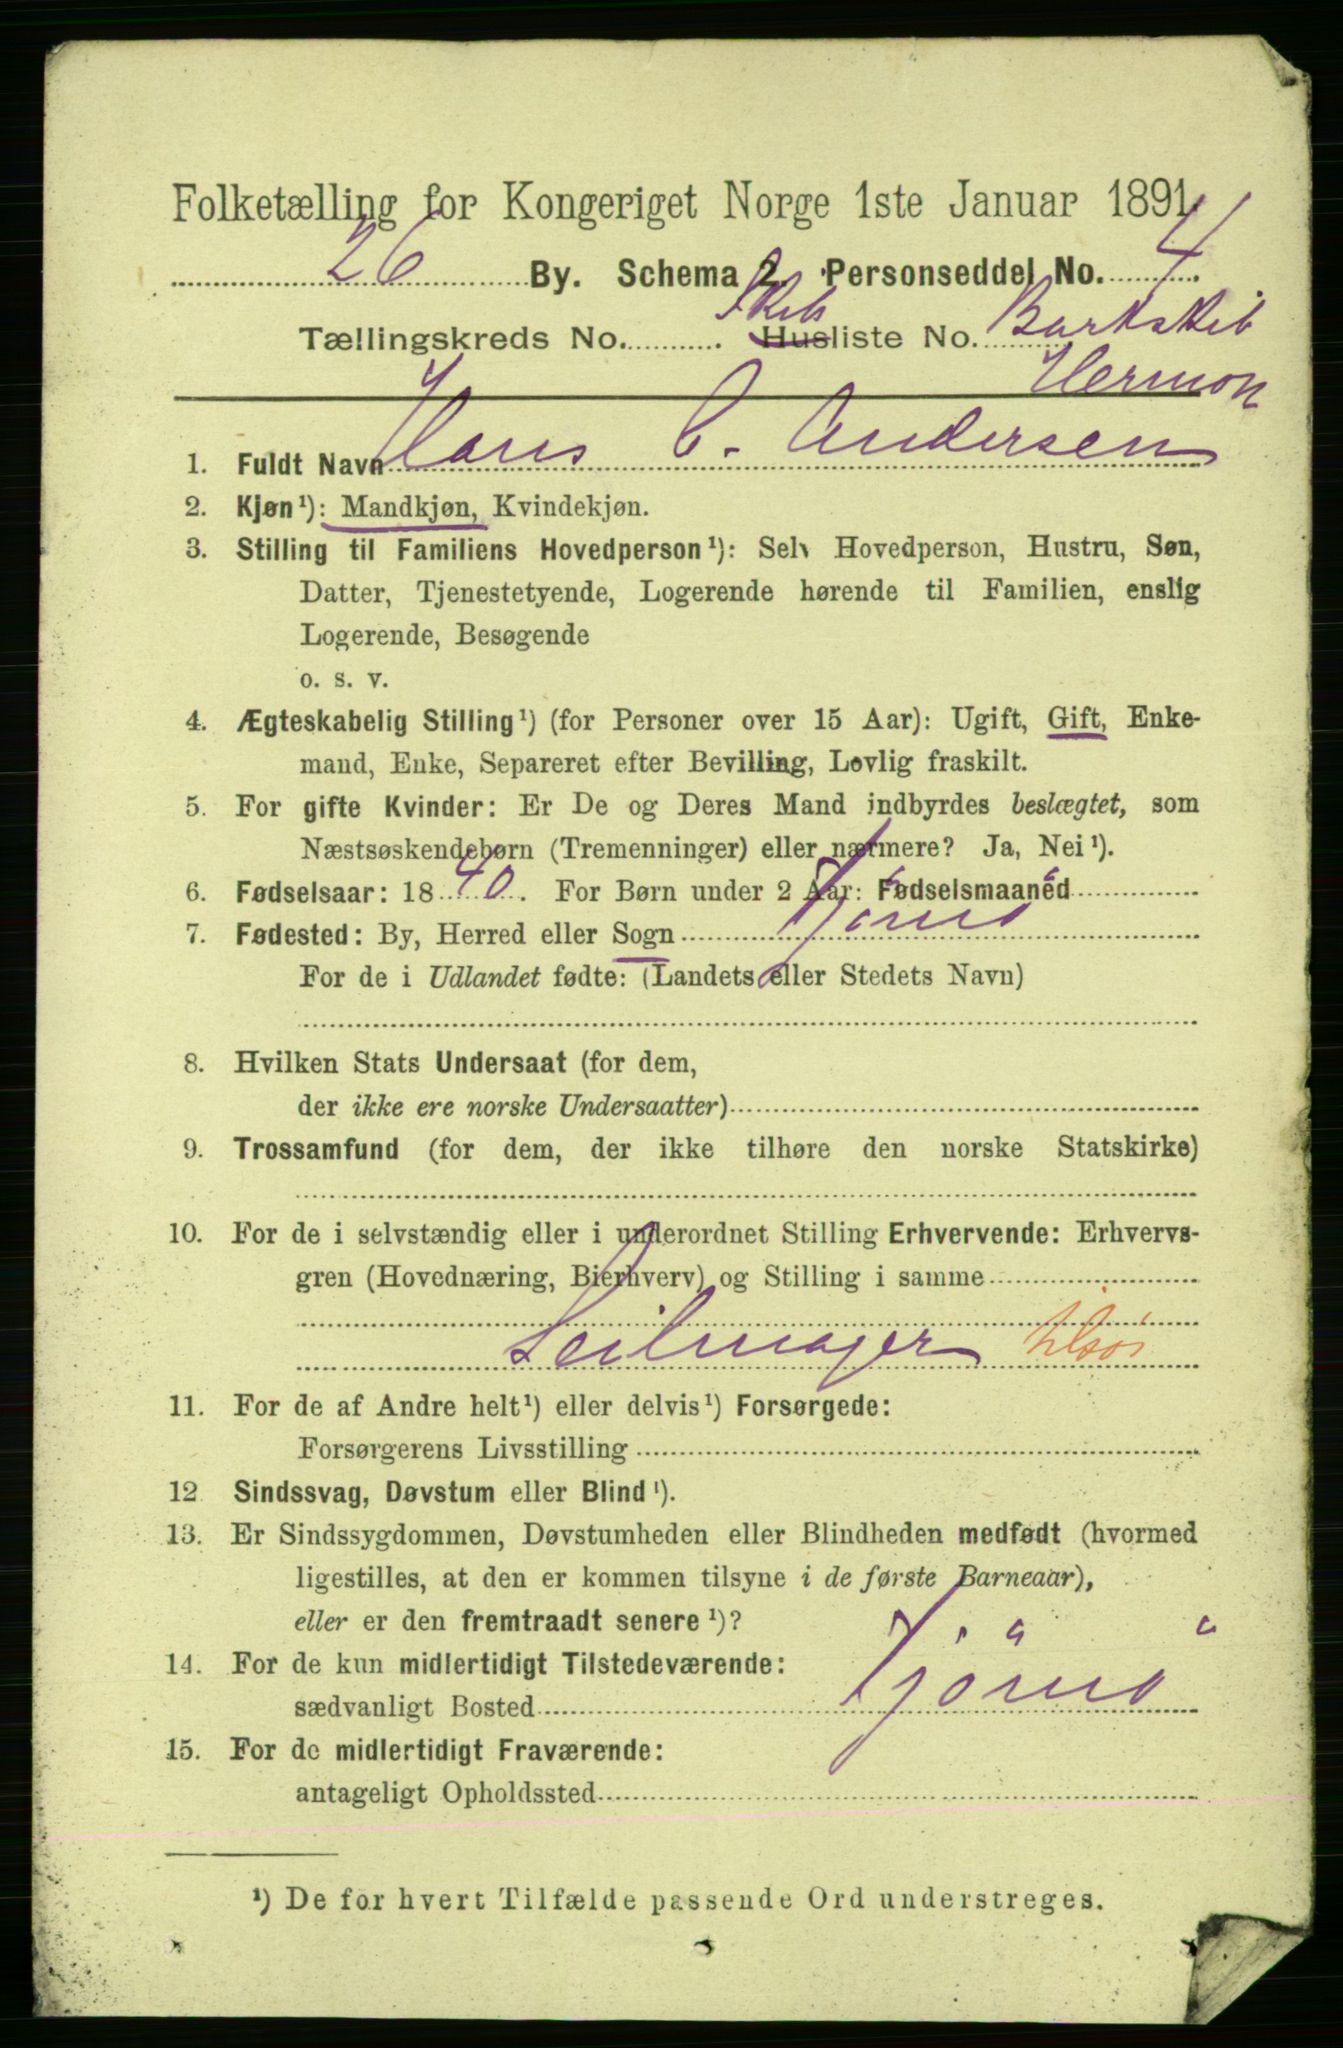 Folketælling for Kongeriget Norge 1ste Januar 1891.
26 By. Schema 2. Personseddel No. 4
Tællingskreds No. Skibs Husliste No. Barkskib
Hermon
1. Fuldt Navn Hans C. Andersen
2. Kjøn¹): Mandkjøn, Kvindekjøn.
3. Stilling til Familiens Hovedperson¹): Selv Hovedperson, Hustru, Søn,
Datter, Tjenestetyende, Logerende hørende til Familien, enslig
Logerende, Besøgende
o. s. v.
4. Ægteskabelig Stilling¹) (for Personer over 15 Aar): Ugift, Gift, Enke-
mand, Enke, Separeret efter Bevilling, Lovlig fraskilt.
5. For gifte Kvinder: Er De og Deres Mand indbyrdes beslægtet, som
Næstsøskendebørn (Tremenninger) eller nærmere? Ja, Nei¹).
6. Fødselsaar: 1840. For Børn under 2 Aar: Fødselsmaaned
7. Fødested: By, Herred eller Sogn Tjømø
For de i Udlandet fødte: (Landets eller Stedets Navn)
8. Hvilken Stats Undersaat (for dem,
der ikke ere norske Undersaatter)
9. Trossamfund (for dem, der ikke tilhøre den norske Statskirke)
10. For de i selvstændig eller i underordnet Stilling Erhvervende: Erhvervs-
gren (Hovednæring, Bierhverv) og Stilling i samme
Seilmager
11. For de af Andre helt¹) eller delvis¹) Forsørgede:
Forsørgerens Livsstilling
12 Sindssvag, Døvstum eller Blind¹).
13. Er Sindssygdommen, Døvstumheden eller Blindheden medfødt (hvormed
ligestilles, at den er kommen tilsyne i de første Barneaar),
eller er den fremtraadt senere¹)?
14. For de kun midlertidigt Tilstedeværende:
sædvanligt Bosted Tjømø
15. For de midlertidigt Fraværende:
antageligt Opholdssted
¹) De for hvert Tilfælde passende Ord understreges.